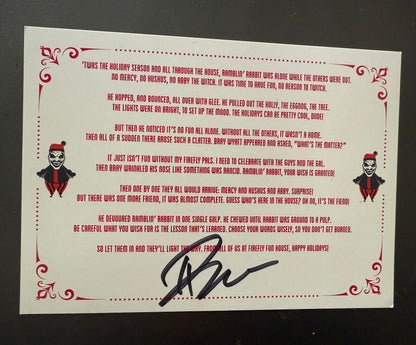 'TWAS THE HOLIDAY SEASON AND ALL THROUGH THE HOUSE, RAMBLIN' RABBIT WAS ALONE WHILE THE OTHERS WERE OUT.
NO MERCY, NO HUSKUS, NO ABBY THE WITCH. IT WAS TIME TO HAVE FUN, NO REASON TO TWITCH.
HE HOPPED, AND BOUNCED, ALL OVER WITH GLEE. HE PULLED OUT THE HOLLY, THE EGGNOG, THE TREE.
THE LIGHTS WERE ON BRIGHT, TO SET UP THE MOOD. THE HOLIDAYS CAN BE PRETTY COOL, DUDE!
BUT THEN HE NOTICED IT'S NO FUN ALL ALONE. WITHOUT ALL THE OTHERS, IT WASN'T A HOME.
THEN ALL OF A SUDDEN THERE AROSE SUCH A CLATTER. BRAY WYATT APPEARED AND ASKED, "WHAT'S THE MATTER?"
IT JUST ISN'T FUN WITHOUT MY FIREFLY PALS. I NEED TO CELEBRATE WITH THE GUYS AND THE GAL.
THEN BRAY WRINKLED HIS NOSE LIKE SOMETHING WAS RANCID. RAMBLIN' RABBIT, YOUR WISH IS GRANTED!
THEN ONE BY ONE THEY ALL WOULD ARRIVE: MERCY AND HUSKUS AND ABBY. SURPRISE!
BUT THERE WAS ONE MORE FRIEND, IT WAS ALMOST COMPLETE. GUESS WHO'S HERE IN THE HOUSE? OH NO, IT'S THE FIEND!
HE DEVOURED RAMBLIN' RABBIT IN ONE SINGLE GULP. HE CHEWED UNTIL RABBIT WAS GROUND TO A PULP.
BE CAREFUL WHAT YOU WISH FOR IS THE LESSON THAT'S LEARNED. CHOOSE YOUR WORDS WISELY, SO YOU DON'T GET BURNED.
SO LET THEM IN AND THEY'LL LIGHT THE WAY. FROM ALL OF US AT FIREFLY FUN HOUSE, HAPPY HOLIDAYS!